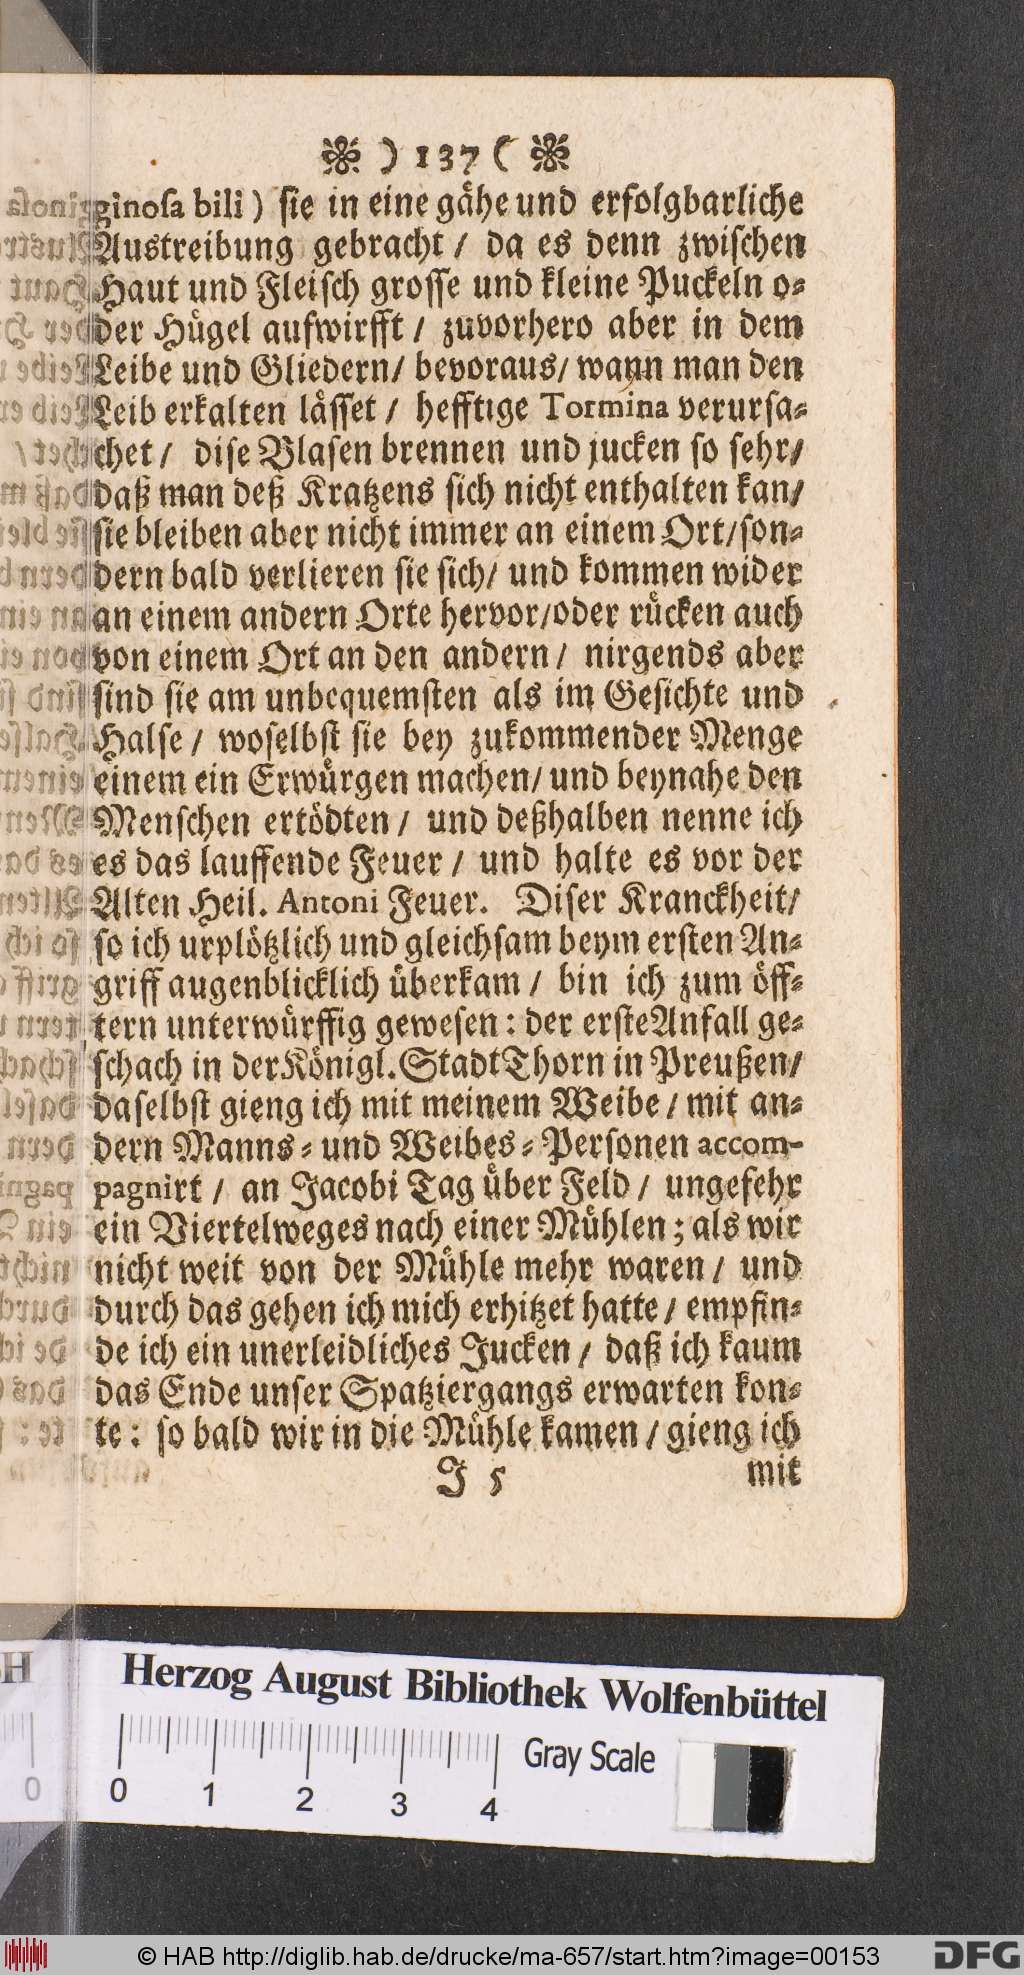 ) 137 (
ginoſa bili) ſie in eine gaͤhe und erfolgbarliche
Austreibung gebracht / da es denn zwiſchen
Haut und Fleiſch groſſe und kleine Puckeln o-
der Huͤgel aufwirfft / zuvorhero aber in dem
Leibe und Gliedern / bevoraus / wann man den
Leib erkalten laͤſſet / hefftige Tormina verurſa-
chet / diſe Blaſen brennen und jucken ſo ſehr /
daß man deß Kratzens ſich nicht enthalten kan /
ſie bleiben aber nicht immer an einem Ort / ſon-
dern bald verlieren ſie ſich / und kommen wider
an einem andern Orte hervor / oder ruͤcken auch
von einem Ort an den andern / nirgends aber
ſind ſie am unbequemſten als im Geſichte und
Halſe / woſelbſt ſie bey zukommender Menge
einem ein Erwuͤrgen machen / und beynahe den
Menſchen ertoͤdten / und deßhalben nenne ich
es das lauffende Feuer / und halte es vor der
Alten Heil. Antoni Feuer. Diſer Kranckheit /
ſo ich urploͤtzlich und gleichſam beym erſten An-
griff augenblicklich uͤberkam / bin ich zum oͤff-
tern unterwuͤrffig geweſen : der erſte Anfall ge-
ſchach in der Koͤnigl. Stadt Thorn in Preußen /
daſelbſt gieng ich mit meinem Weibe / mit an-
dern Manns- und Weibes-Perſonen accom-
pagnirt / an Jacobi Tag uͤber Feld / ungefehr
ein Viertelweges nach einer Muͤhlen ; als wir
nicht weit von der Muͤhle mehr waren / und
durch das gehen ich mich erhitzet hatte / empfin-
de ich ein unerleidliches Jucken / daß ich kaum
das Ende unſer Spatziergangs erwarten kon-
te : ſo bald wir in die Muͤhle kamen / gieng ich
J 5 mit
Herzog August Bibliothek Wolfenbüttel
Gray Scale
0 0 1 2 3 4
© HAB http://diglib.hab.de/drucke/ma-657/start.htm?image=00153
DFG